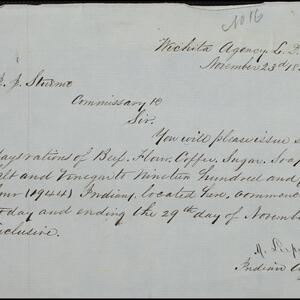 No 16
Wichita Agency L.
November 23d 18
J. Sturm
Commissary
Sir.
You will please issue
days rations of Beef. Flour. Coffee. Sugar. Soap
and Vinegar to Nineteen hundred and
(1944) Indians, located here, commenc
today and ending the 29th day of November
inclusive.
Indian